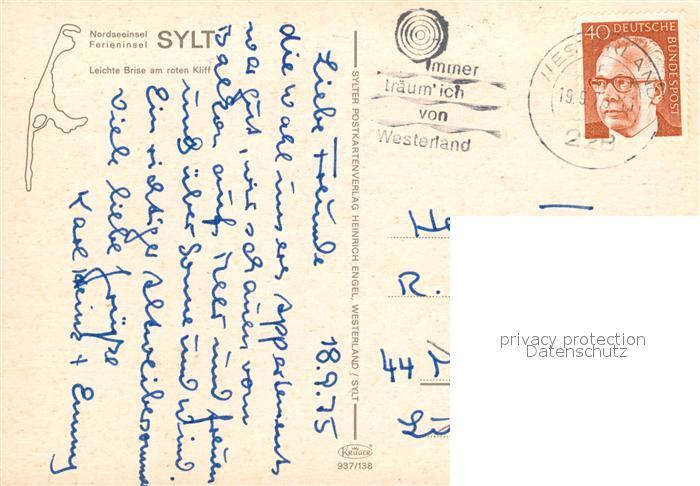 Nordseeinsel
Ferieninsel SYLT
Leichte Brise am roten Kliff
Immer
träum' ich
von
Westerland
WESTERLAND
19.9.
228
40 DEUTSCHE
BUNDESPOST
SYLTER POSTKARTENVERLAG HEINRICH ENGEL, WESTERLAND / SYLT
KRÜGER
937/138
18.9.75
Liebe Freunde
die Wahl unseres Appartements
war gut, wir schauen vom
Balkon aufs Meer und freuen
uns über Sonne und Wind.
Ein richtiger Altweibersommer
Viele liebe Grüße
Karl Heinz + Emmy
R.
44
privacy protection
Datenschutz